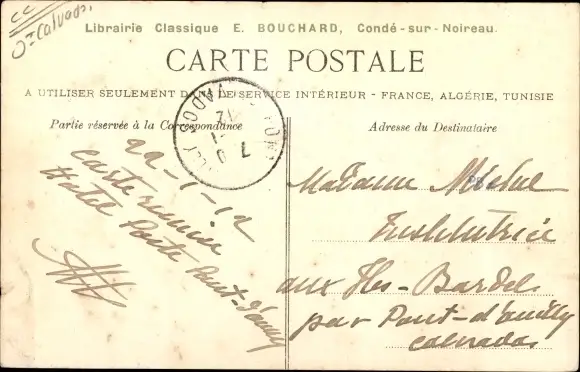 CC
Ct Calvados.
Librairie Classique E. BOUCHARD, Condé-sur-Noireau.
CARTE POSTALE
A UTILISER SEULEMENT DANS LE SERVICE INTÉRIEUR - FRANCE, ALGÉRIE, TUNISIE
Partie réservée à la Correspondance
Adresse du Destinataire
22-1-12
Carte
Hotel Poste Pont-d'ouilly
Madame Michel
Institutrice
aux Iles-Bardel
par Pont-d'ouilly
calvados